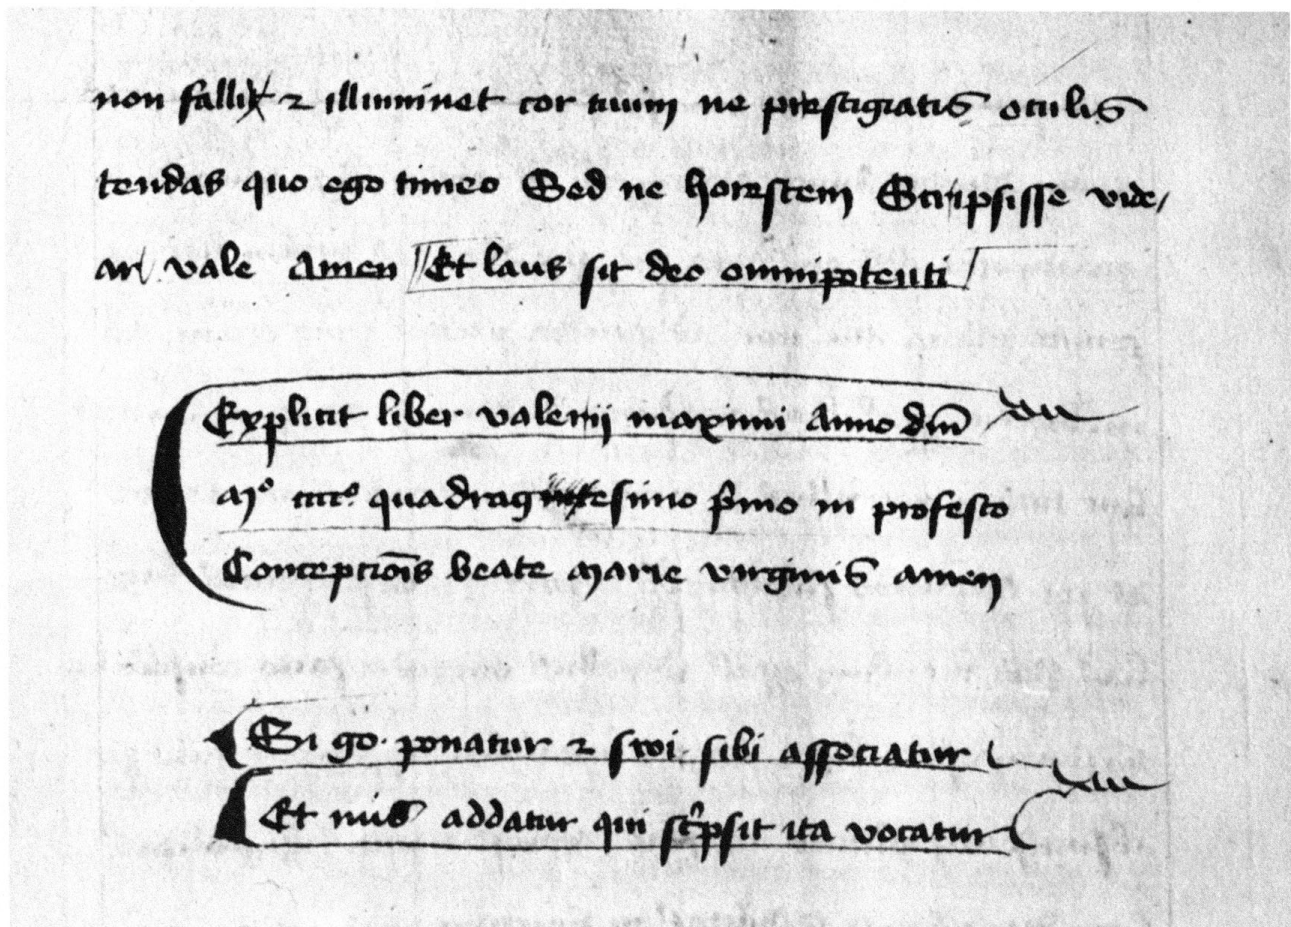 non fallit ⁊ illuminet cor tuum ne prestigiatis oculis
tendas quo ego timeo Sed ne horestem Scripsisse vide/
ar vale Amen Et laus sit deo omnipotenti
Explicit liber valerii maximi Anno dm̄
Mº ccccº quadragesimo p̄mo in profesto
Concepcōis beate marie virginis amen
Si go· ponatur ⁊ swi· sibi associatur
Et nus addatur qui sc͛psit ita vocatur